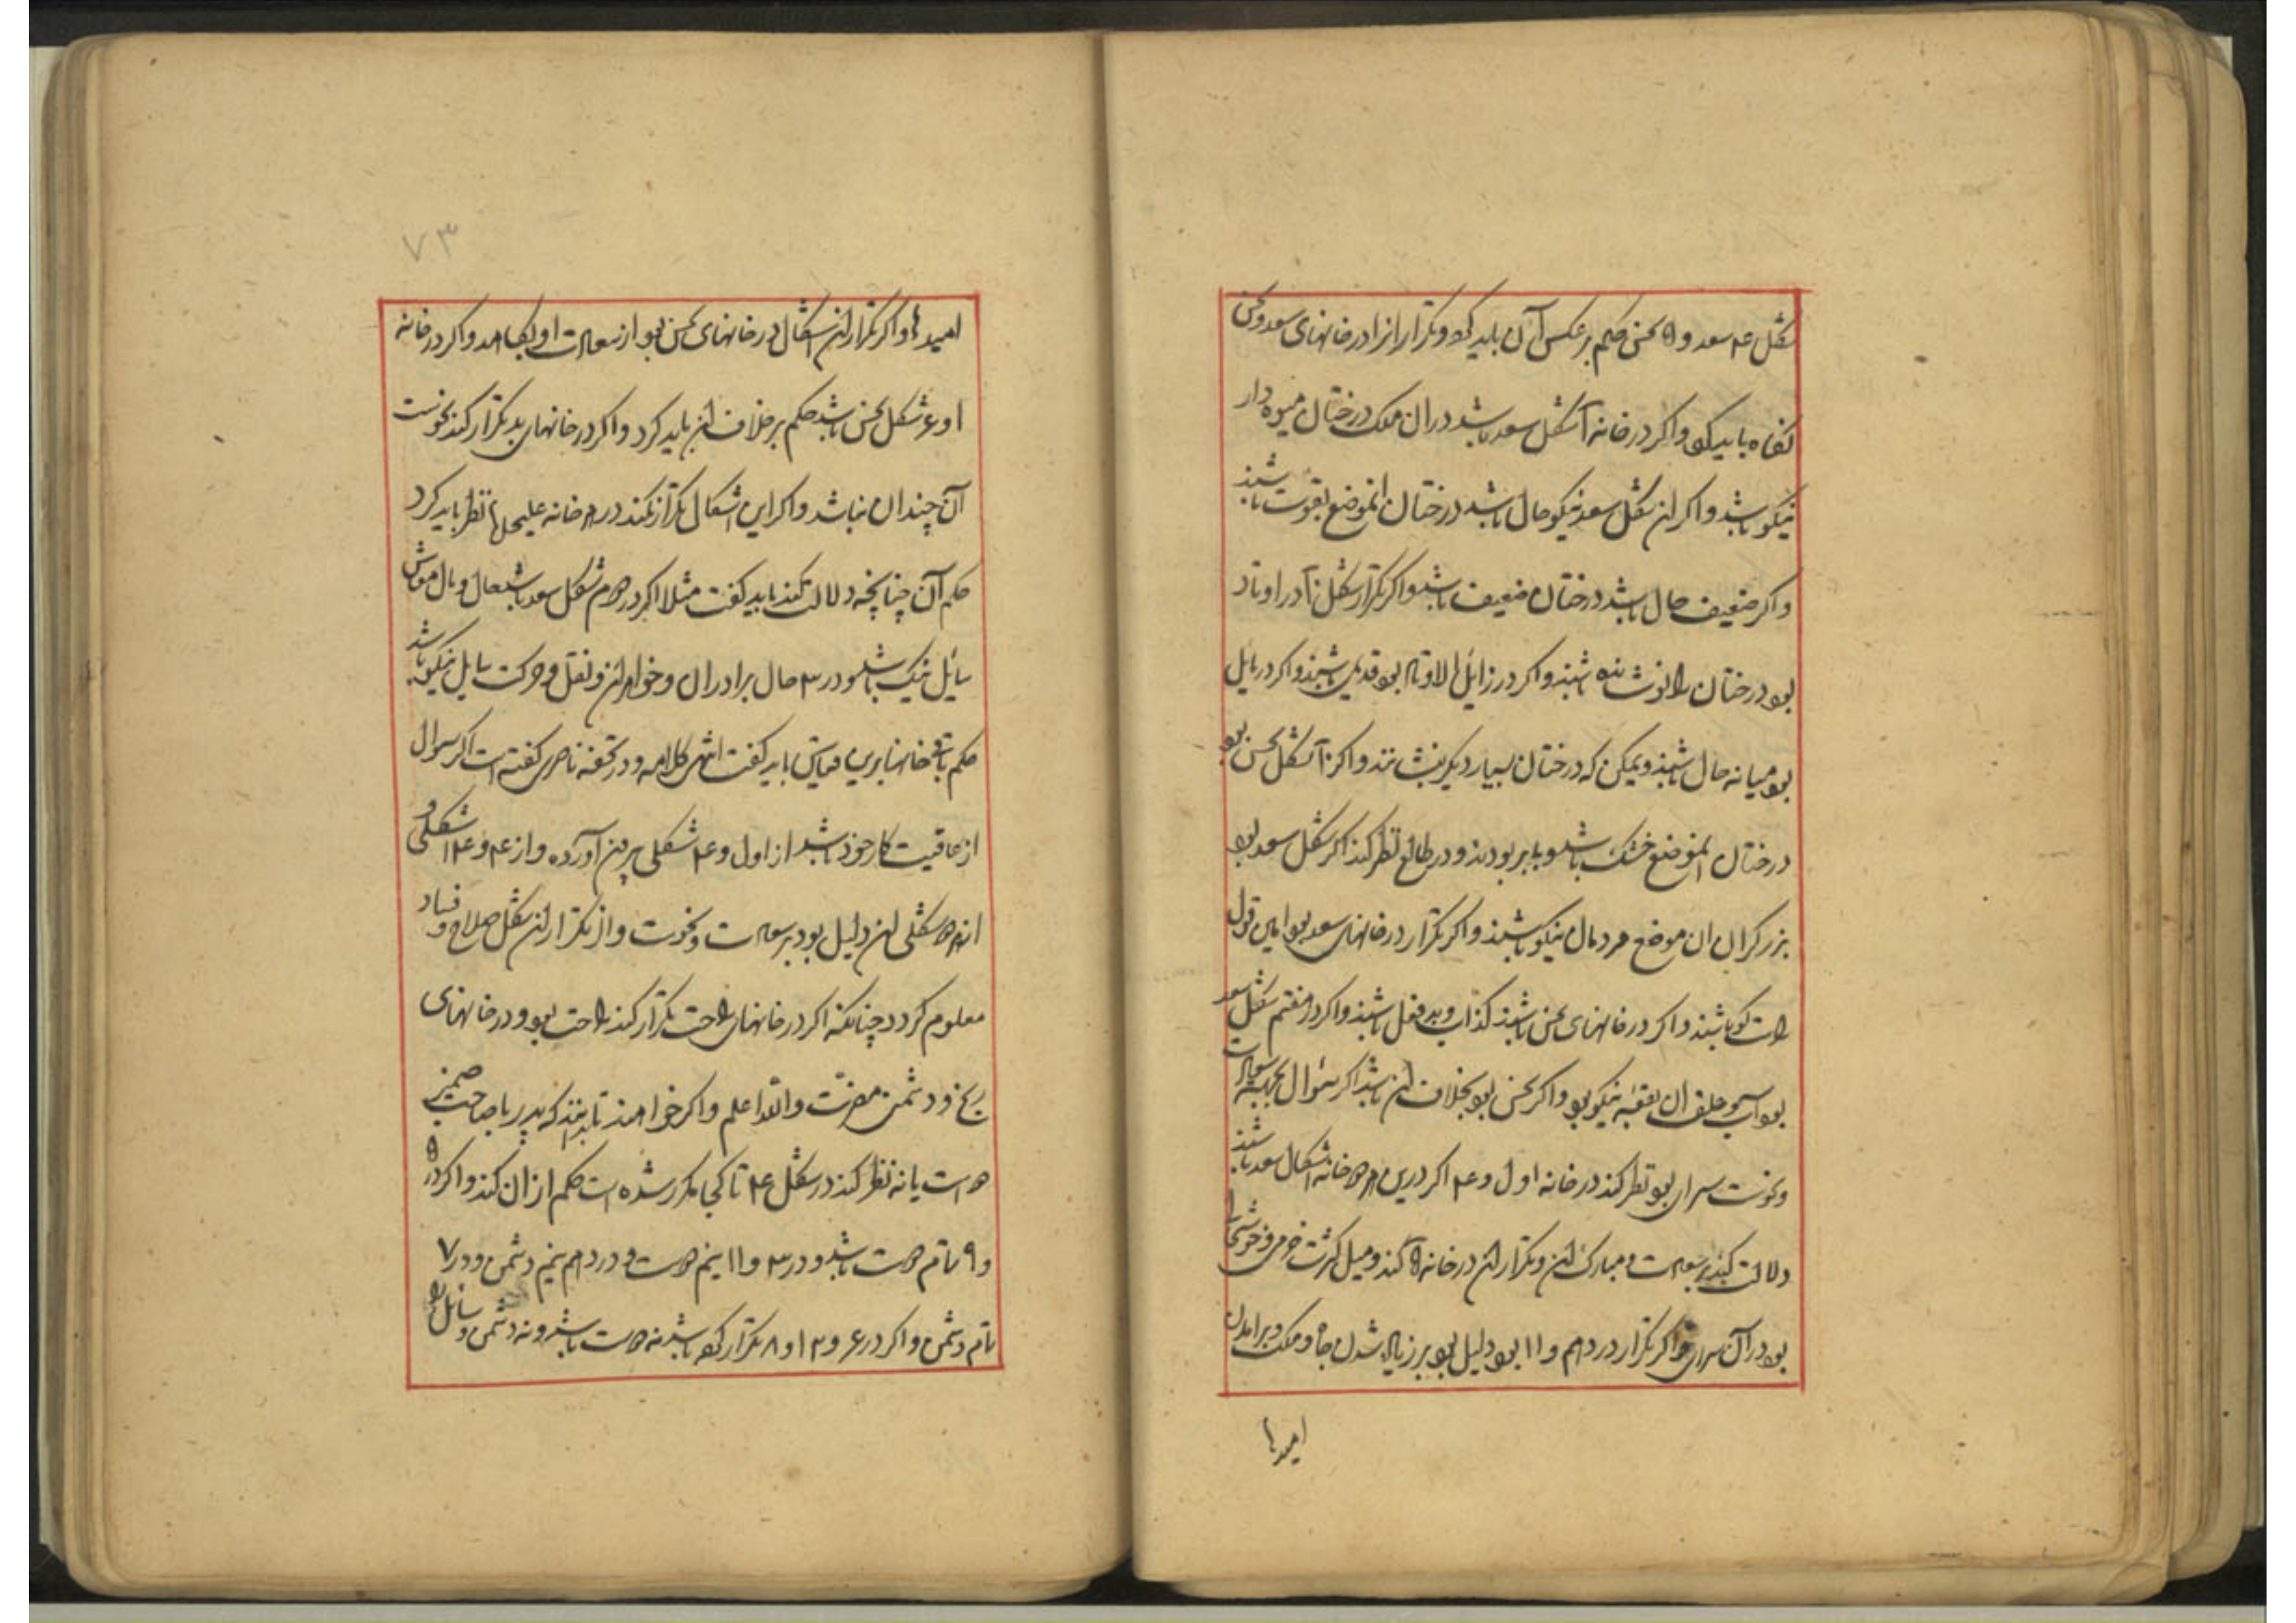 شکل ۴ سعد و ۵ نحس حکم بر عکس آن باید کرد و تکرار انرا در خانهای سعد و نحس
نگاه باید کرد و اگر در خانه آ شکل سعد باشد در ان ملک درختان میوه دار
نیکو باشد و اگر ان شکل سعد نیکو حال باشد درختان انموضع بقوت باشند
و اگر ضعیف حال باشد درختان ضعیف باشد و اگر تکرار شکل در اوتاد
بود درختان را نو نشانده باشند و اگر در زایل الاوتاد بود قدیمی باشند و اگر در مایل
بود میانه حال باشند و یمکن که درختان بسیار دیگر بنشانند و اگر شکل نحس بود
درختان انموضع خشک باشد و بی بر بودند و در طالع نظر کند اگر شکل سعد بود
بزرگران ان موضع مردمان نیکو باشند و اگر تکرار در خانهای سعد بود این قول
راست گو باشند و اگر در خانهای نحس باشند کذاب و بد فعل باشند و اگر در هفتم شکل سعد
بود آب و علف ان بقعه نیکو بود و اگر نحس بود بخلاف ان باشد اگر سؤال بجهة سعادت
و نحوست سرای بود نظر کند در خانه اول و ۴ اگر درین هر دو خانه اشکال سعد باشند
دلالت کند بر سعادت و مبارکی ان و تکرار ان در خانه ۵ کند دلیل کثرت خرمی و خوشی
بود در آن سرای و اگر تکرار در دهم و ۱۱ بود دلیل بود بر زیاده شدن جاه و ملک و بر امدن
امیدها
۷۳
امیدها و اگر تکرار ان اشکال در خانهای نحس بود از سعادت او بکاهد و اگر در خانه
ا و ۴ شکل نحس باشد حکم بر خلاف ان باید کرد و اگر در خانهای بد تکرار کند نحوست
آن چندان نباشد و اگر این اشکال تکرار نکند در هر خانه علیحده نظر باید کرد
حکم آن چنانچه دلالت کند باید گفت مثلا اگر در دوم شکل سعد باشد حال و مال و معاش
سایل نیک باشد و در ۳ حال برادران و خواهران و نقل و حرکت سایل نیکو باشد
حکم باقی خانها برین قیاس باید گفت انتهی کلامه و در تحفه ناصری گفته است اگر سوال
از عاقبت کار خود باشد از اول و ۴ شکلی بیرون آورده و از ۴ و ۱۴ شکلی و
از هر دو شکلی ان دلیل بود بر سعادت و نحوست و از تکرار ان شکل صلاح و فساد
معلوم گردد چنانکه اگر در خانهای راحت تکرار کند راحت بود و در خانهای
رنج و دشمن مضرت والله اعلم و اگر خواهند تا بدانند که پدر با صاحب ضمیر
دوست یا نه نظر کند در شکل ۴ تا کجا مکرر شده است حکم از ان کند و اگر در ۵
و ۹ تام دوست باشد و در ۳ و ۱۱ نیم دوست و در دهم نیم دشمن و در ۷
تام دشمن و اگر در ۶ و ۱۲ و ۸ تکرار کرده باشد نه دوست باشد و نه دشمن و سائل